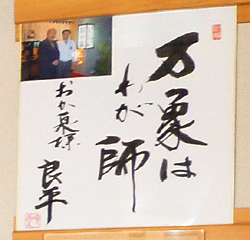 万象は
わが師
おか泉様
良平